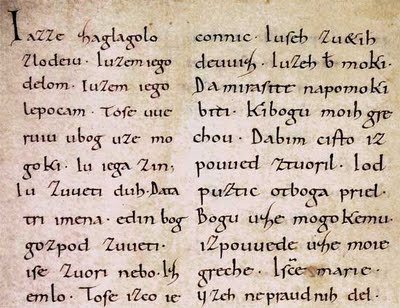 Iazze zaglagolo
zlodeiu. Iuzem iego
delom. Iuzem iego
lepocam. Tose uue
ruiu ubog uze mo
goki. Iu iega zin,
Iu zuueti duh. Data
tri imena. edin bog
gozpod zuueti.
ise zuori nebo. Iz
emlo. Tose izco ie
connic. Iuseh zu&ih
deuuiz. Iuzeh moki.
Da mirasite napomoki
biti. Kibogu moih gre
chou. Dabim cisto iz
pouued ztuoril. Iod
puztic otboga priel.
Bogu uze mogokemu.
izpouuede uze moie
greche. Isce marie.
yzeh nepraudnih del.